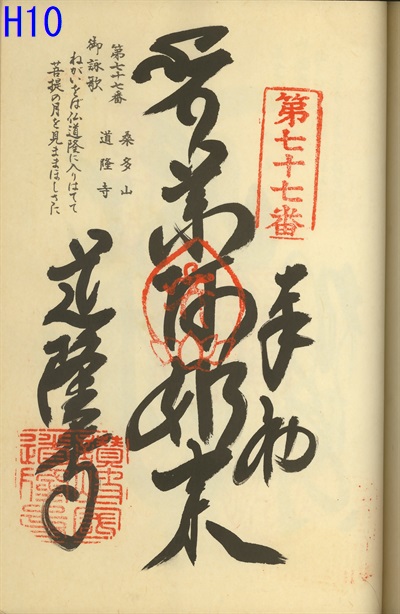 H10
第七十七番
奉納
薬師如来
道隆寺
第七十七番 桑多山
道隆寺
御詠歌
ねがいをば仏道隆に入りはてて
菩提の月を見まくほしさに